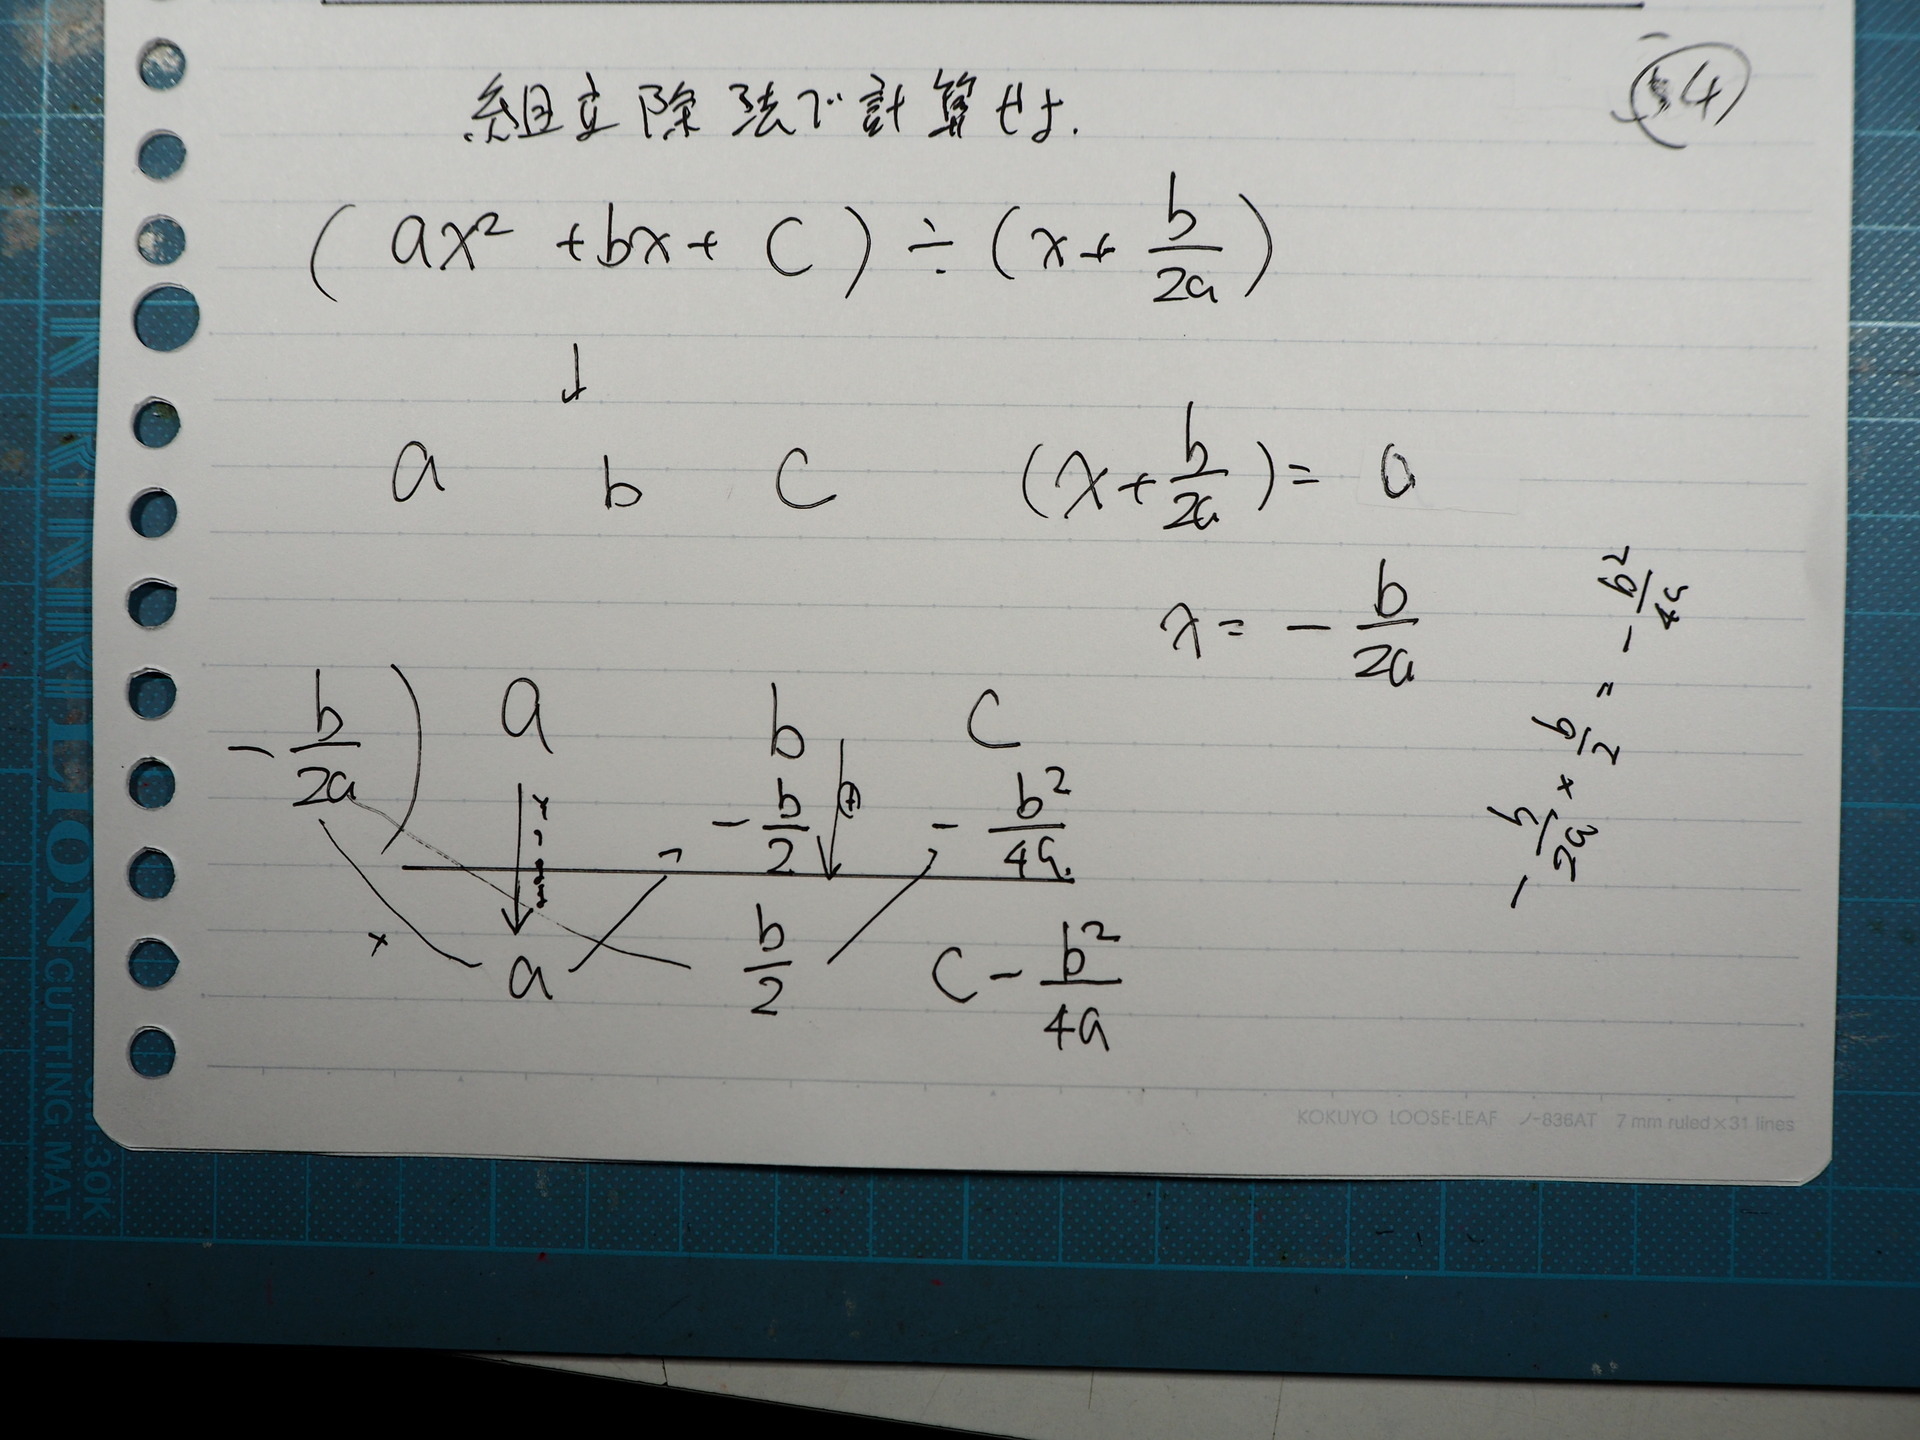 組立除法で計算せよ.
(ax² + bx + c) ÷ (x + b/2a)
↓
a b c (x + b/2a) = 0
x = - b/2a
-b/2a ) a b c
-b/2 -b²/4a
× a b/2 c - b²/4a
- b/2a × b/2 = - b²/4a
KOKUYO LOOSE-LEAF ノ-836AT 7 mm ruled×31 lines
LION
CUTTING MAT